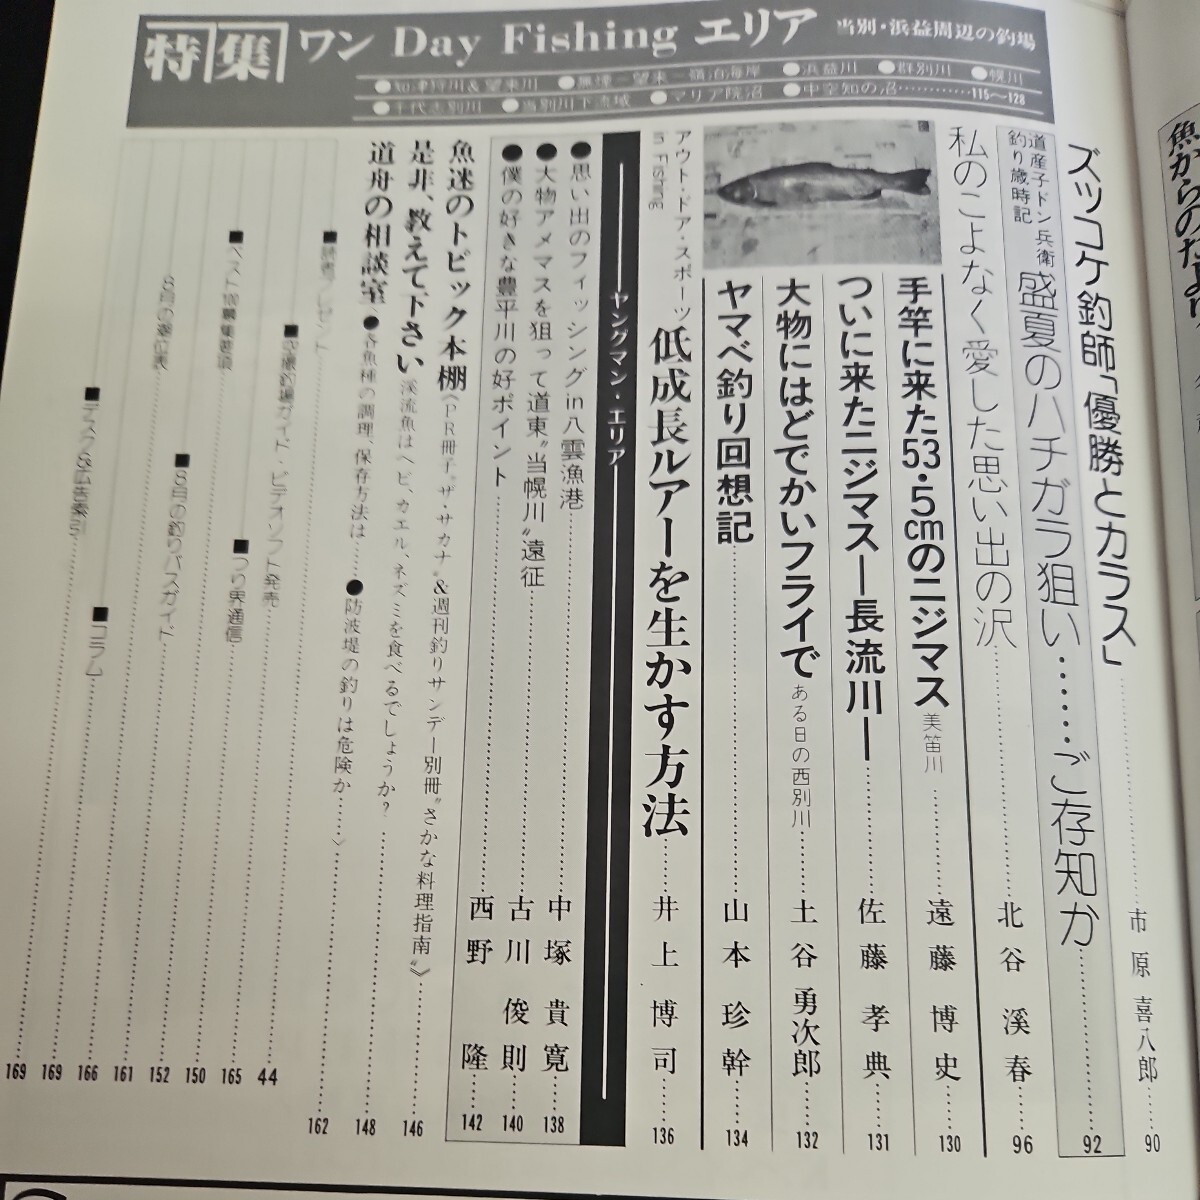 特集 ワン Day Fishing エリア 当別・浜益周辺の釣場
●知津狩川&望来川 ●無煙—望来—嶺泊海岸 ●浜益川 ●群別川 ●幌川
●千代志別川 ●当別川下流域 ●マリア院沼 ●中空知の沼…………115〜128
魚からのたより
ズッコケ釣師「優勝とカラス」……市原喜八郎……90
道産子ドン兵衛
釣り歳時記
盛夏のハチガラ狙い……ご存知か……92
私のこよなく愛した思い出の沢……北谷溪春……96
手竿に来た53・5cmのニジマス 美笛川……遠藤博史……130
ついに来たニジマス—長流川—……佐藤孝典……131
大物にはどでかいフライで ある日の西別川……土谷勇次郎……132
ヤマベ釣り回想記……山本珍幹……134
アウト・ドア・スポーツ
in Fishing
低成長ルアーを生かす方法……井上博司……136
ヤングマン・エリア
●思い出のフィッシングin八雲漁港……中塚貴寛……138
●大物アメマスを狙って道東〝当幌川〟遠征……古川俊則……140
●僕の好きな豊平川の好ポイント……西野隆……142
魚迷のトピック本棚《PR冊子〝ザ・サカナ〟&週刊釣りサンデー別冊〝さかな料理指南〟》……146
是非、教えて下さい 渓流魚はヘビ、カエル、ネズミを食べるでしょうか?……148
道舟の相談室 ●各魚種の調理、保存方法は……●防波堤の釣りは危険か……》……162
■読者プレゼント
■空撮釣場ガイド・ビデオソフト発売……44
■ベスト100募集要項
■つり界通信……165
150
■8月の釣りバスガイド……152
161
■コラム……166
■デスク&広告索引……169
169